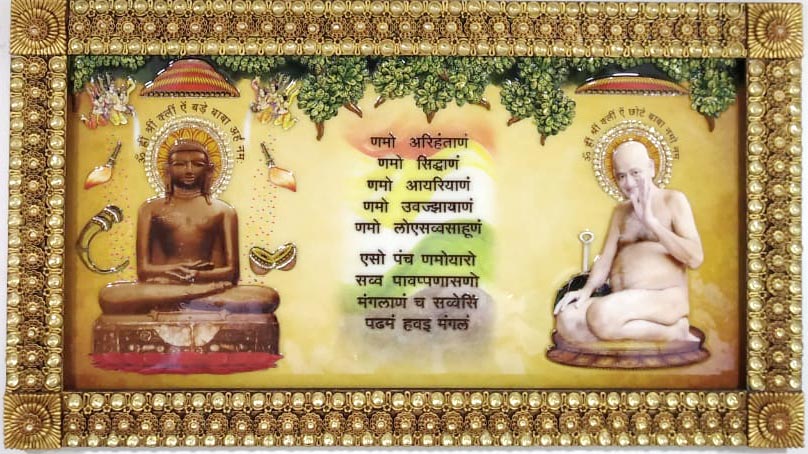 ॐ ह्रीं श्रीं क्लीं ऐं बड़े बाबा अर्हं नमः
ॐ ह्रीं श्रीं क्लीं ऐं छोटे बाबा नमो नमः
णमो अरिहंताणं
णमो सिद्धाणं
णमो आयरियाणं
णमो उवज्झायाणं
णमो लोएसव्वसाहूणं
एसो पंच णमोयारो
सव्व पावप्पणासणो
मंगलाणं च सव्वेसिं
पढमं हवइ मंगलं